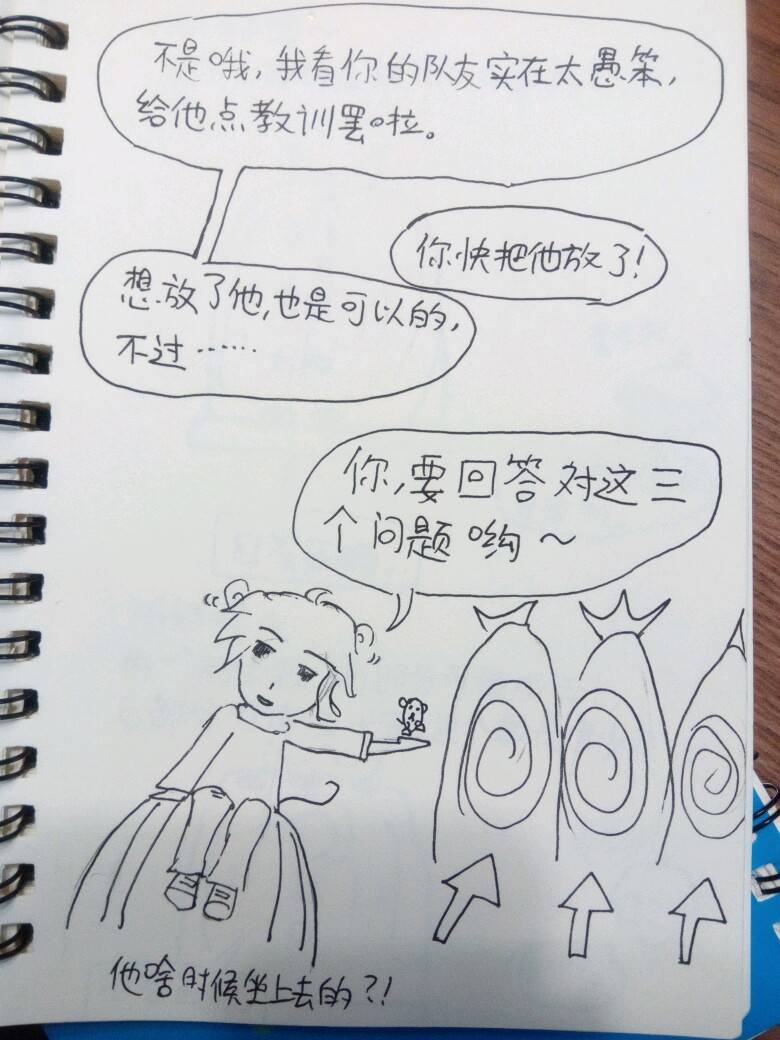 不是哦,我看你的队友实在太愚笨,
给他点教训罢啦。
你快把他放了!
想放了他,也是可以的,
不过……
你,要回答对这三
个问题哟~
他啥时候坐上去的?!